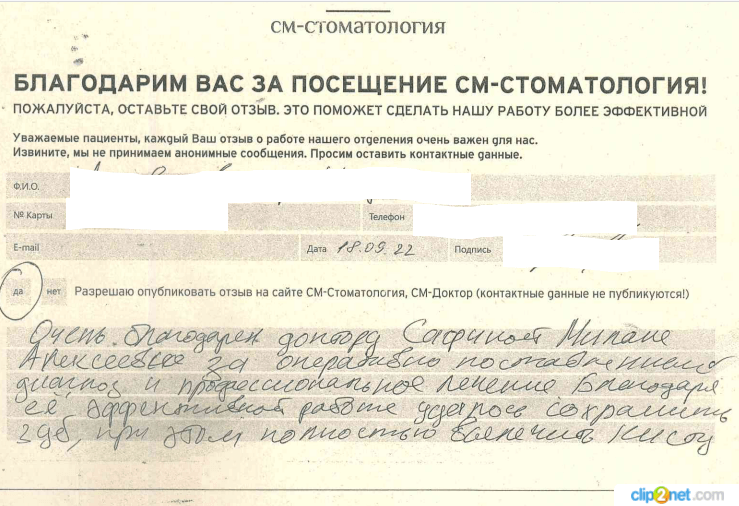 СМ-СТОМАТОЛОГИЯ
БЛАГОДАРИМ ВАС ЗА ПОСЕЩЕНИЕ СМ-СТОМАТОЛОГИЯ!
ПОЖАЛУЙСТА, ОСТАВЬТЕ СВОЙ ОТЗЫВ. ЭТО ПОМОЖЕТ СДЕЛАТЬ НАШУ РАБОТУ БОЛЕЕ ЭФФЕКТИВНОЙ
Уважаемые пациенты, каждый Ваш отзыв о работе нашего отделения очень важен для нас.
Извините, мы не принимаем анонимные сообщения. Просим оставить контактные данные.
Ф.И.О.
№ Карты Телефон
E-mail Дата 18.09.22 Подпись
да нет Разрешаю опубликовать отзыв на сайте СМ-Стоматология, СМ-Доктор (контактные данные не публикуются!)
Очень благодарен доктору Сафиной Милане
Алексеевне за оперативно поставленный
диагноз и профессиональное лечение Благодаря
её, эффективной работе удалось сохранить
зуб, при этом полностью вылечить кисту
clip2net.com